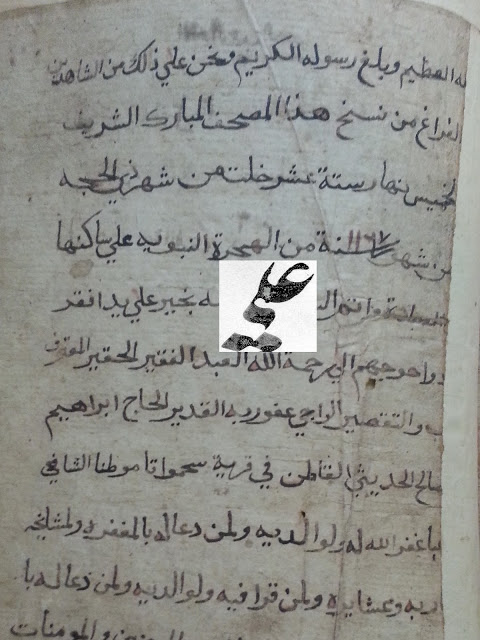 له العظيم وبلغ رسوله الكريم ونحن علي ذالك من الشاهدين
الفراغ من نسخ هذا المصحف المبارك الشريف
لخميس نهار ستة عشر خلت من شهر ذي الحجه
من شهر ١١٦٧ لسنة من الهجرة النبويه علي ساكنها
بخير علي يد افقر
واحوجهم الي رحمة الله العبد الفقير الحقير المعترف
والتقصير الراجي عفو ربه القدير الحاج ابراهيم
صالح الحديثي القاطن في قرية موطنا الشافعي
غفر الله له ولوالديه ولمن دعا له بالمغفره ولمشايخه
وعشايره ولمن قرا فيه ولوالديه ولمن دعا له با
والمومنات